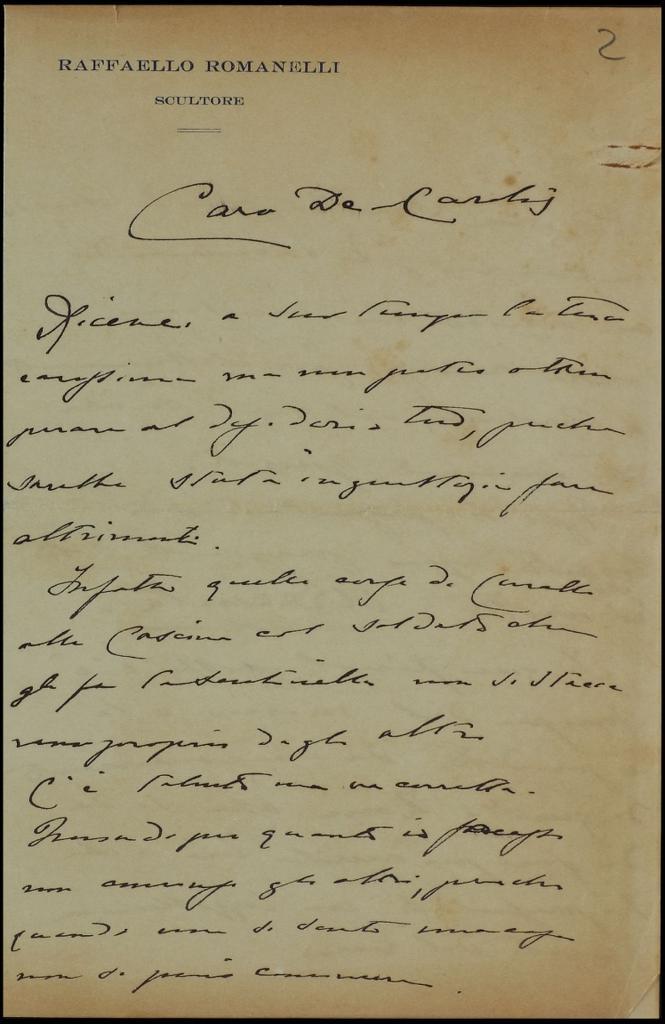 2
RAFFAELLO ROMANELLI
SCULTORE
Caro De Carolis
Ricevei a suo tempo la tua
carissima ma non potei ottem
perare al desiderio tuo, perche
sarebbe stata ingiustizia fare
altrimenti.
Infatti quelle corse di Cavalli
alle Cascine col soldato che
gli fa la sentinella non si stacca
vano proprio dagli altri
C'è talento ma va corretto.
per quanto io facessi
non convinsi gli altri, perche
quando non si sente una cosa
non si puo convincere.